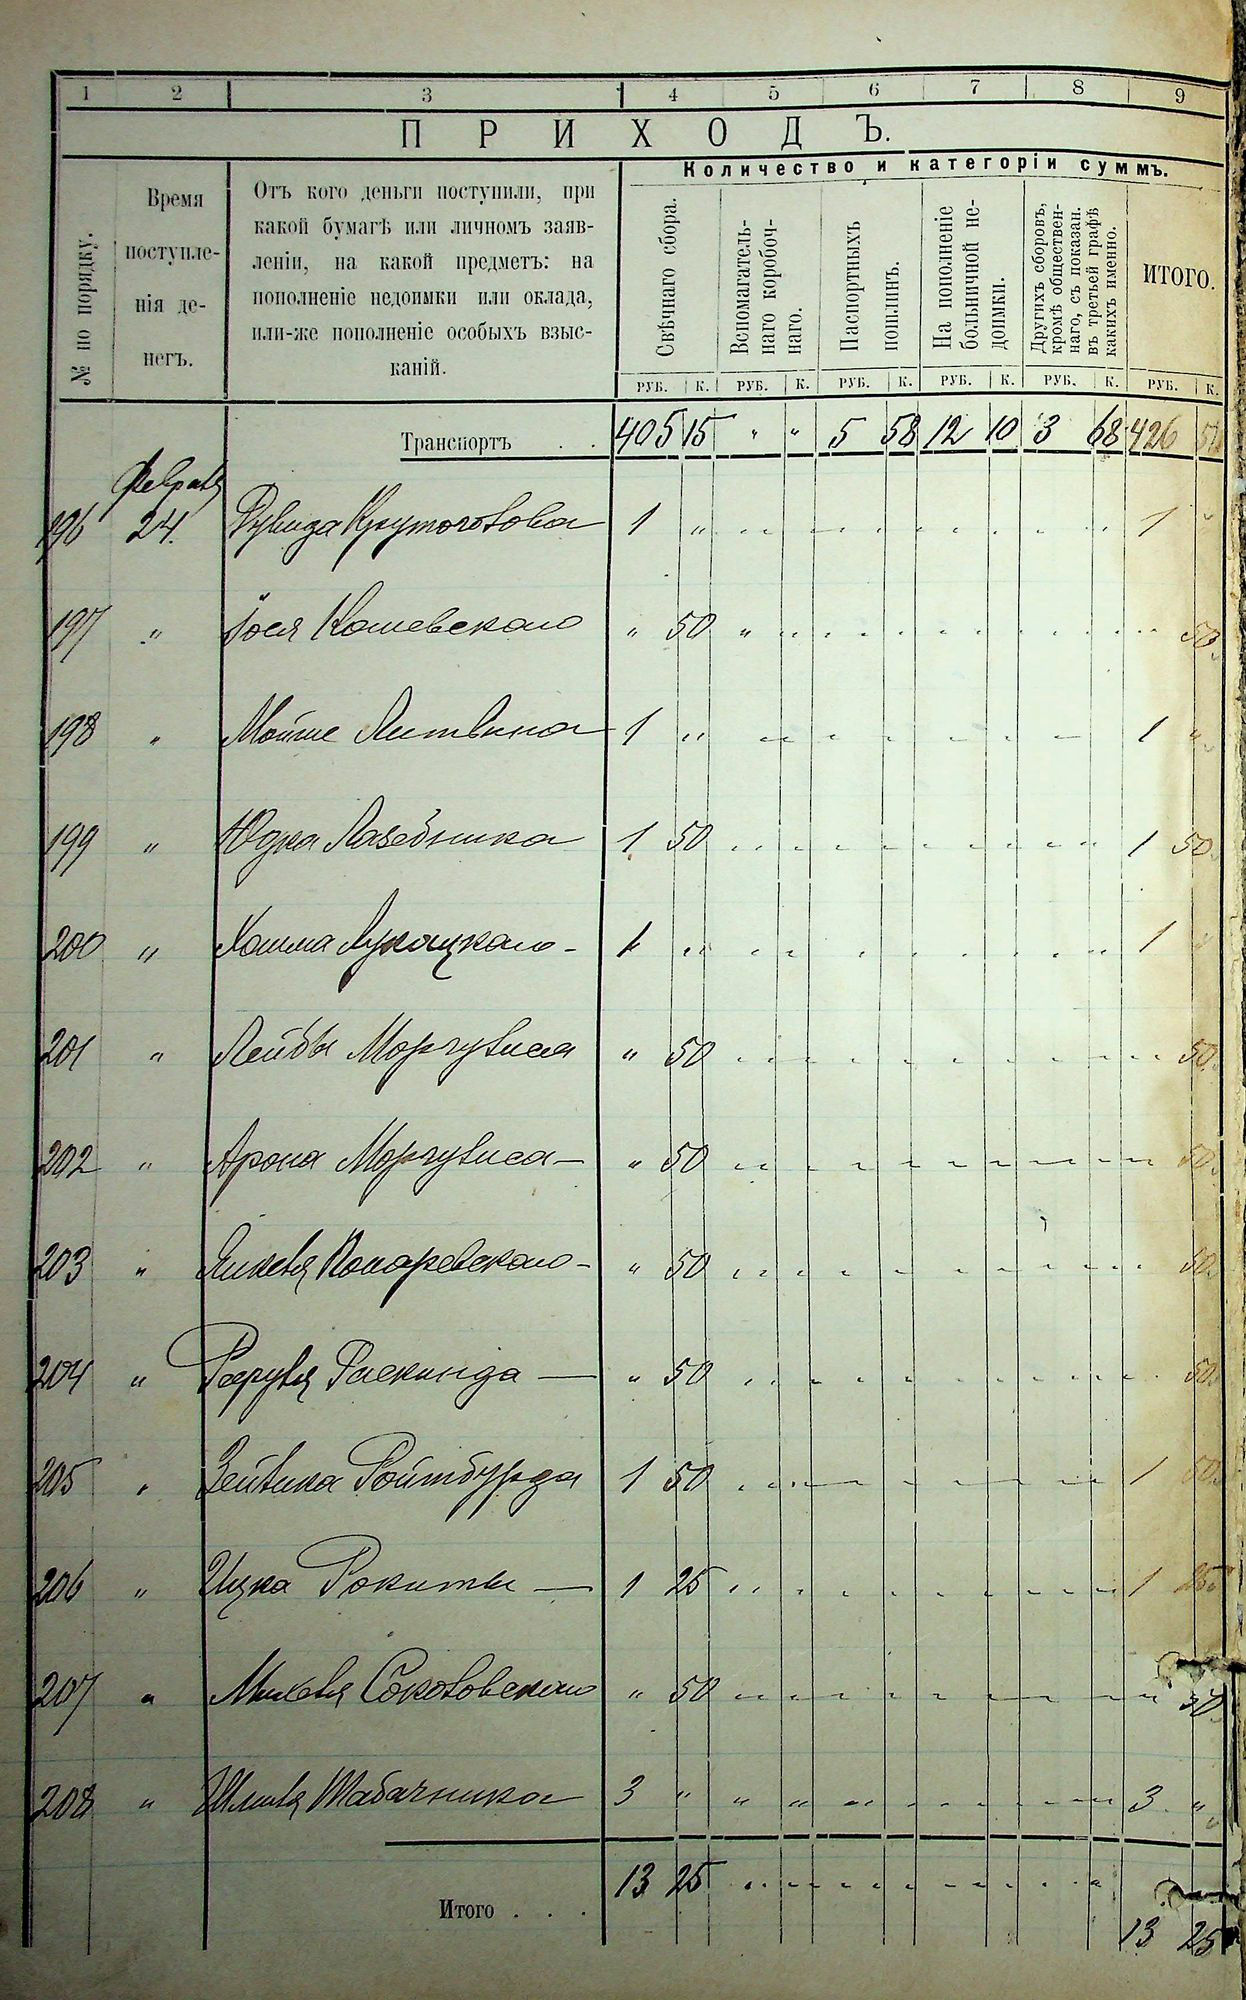 1 2 3 4 5 6 7 8 9
ПРИХОДЪ.
№ по порядку.
Время
поступле-
нія де-
негъ.
Отъ кого деньги поступили, при
какой бумагѣ или личномъ заяв-
леніи, на какой предметъ: на
пополненіе недоимки или оклада,
или-же пополненіе особыхъ взыс-
каній.
Количество и категоріи суммъ.
Свѣчнаго сбора.
Вспомагатель-
наго коробоч-
наго.
Паспортныхъ
пошлинъ.
На пополненіе
больничной не-
доимки.
Другихъ сборовъ,
кромѣ обществен-
наго, съ показан.
въ третьей графѣ
какихъ именно.
ИТОГО.
РУБ. К. РУБ. К. РУБ. К. РУБ. К. РУБ. К. РУБ. К.
Транспортъ . . 405 15 " " 5 58 12 10 3 68 426
Февраля
196 24. 1 " 1 "
197 " Іося Кошевского " 50 " 50
198 " Мойше Литвина 1 " 1 "
199 " Юдка Лазебника 1 50 1 50
200 " 1 " 1
201 " Лейбы Моргулиса " 50 50
202 " Арона Моргулиса — " 50 50
203 " " 50 50
204 " Раскинда — " 50 50
205 " Зейлика Ройтбурда 1 50 1 50
206 " Ицка Рокиты — 1 25 1 25
207 " Михеля Соколовского " 50 50
208 " Шмиля Табачника 3 " " " 3 "
Итого . . . 13 25 13 25